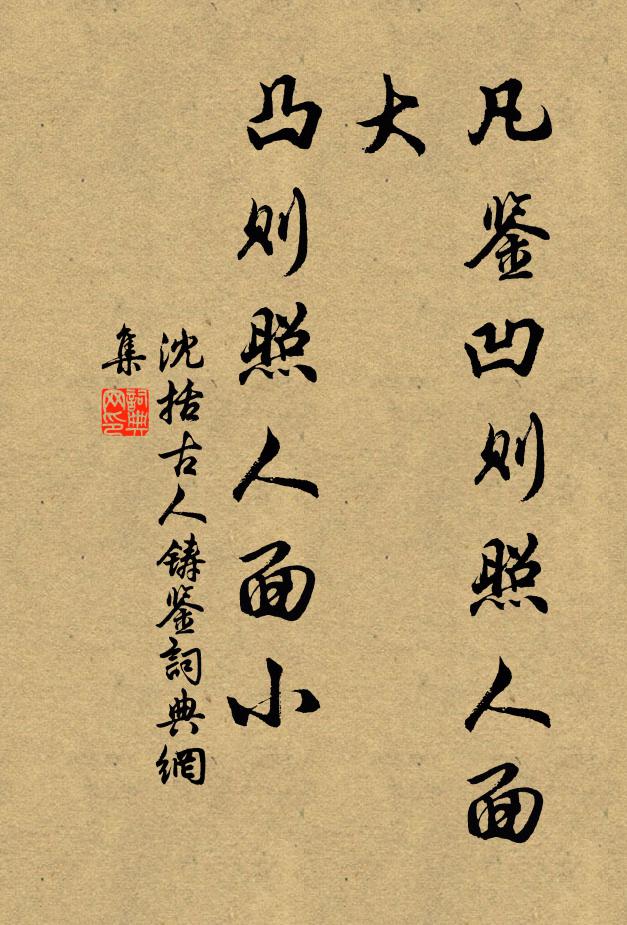 凡鉴凹则照人面
大
凸则照人面小
沈括古人铸鉴詞典網
集
詞典
网印